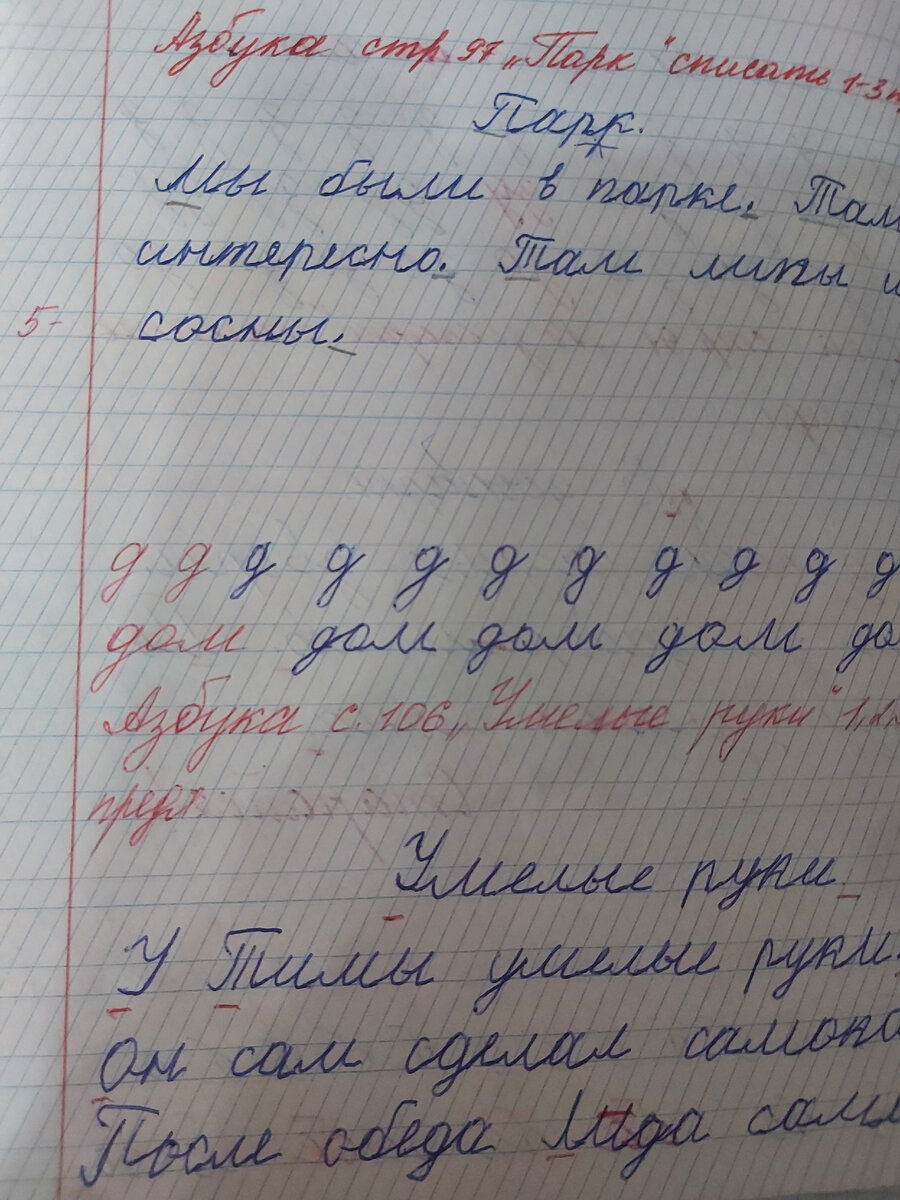 Азбука стр. 97 „Парк“ списать 1-3 п
Парк.
Мы были в парке. Там
интересно. Там липы и
5-
сосны.
д д д д д д д д д д д
дом дом дом дом до
Азбука с. 106 „Умелые руки“ 1, 2
предл
Умелые руки
У Тимы умелые руки.
Он сам сделал самока
После обеда Лида сама